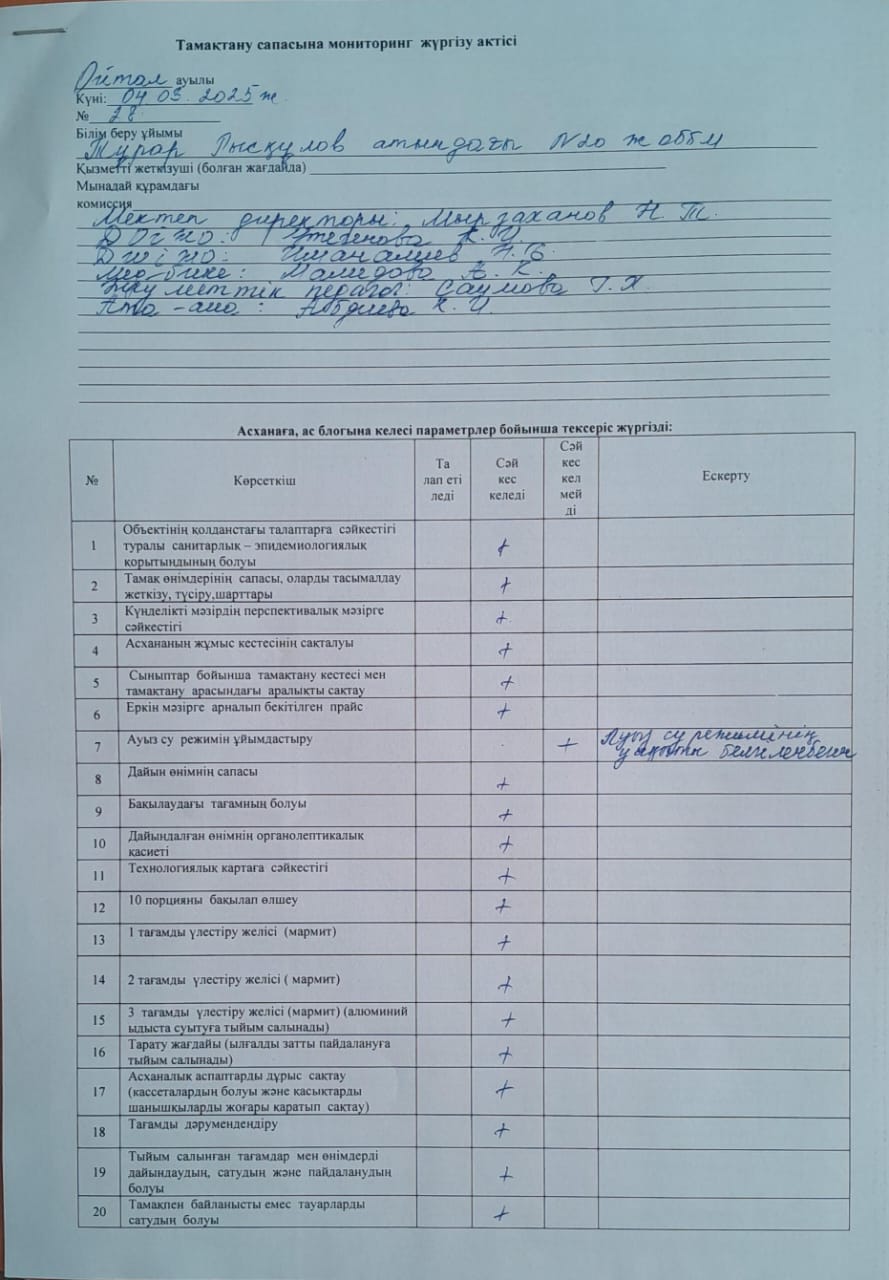 Тамақтану сапасына мониторинг жүргізу актісі
Ойтал ауылы
Күні: 04 03. 2025 ж.
№ 28
Білім беру ұйымы
Тұрар Рысқұлов атындағы №20 жоббм
Қызметті жеткізуші (болған жағдайда)
Мынадай құрамдағы
комиссия
Мектеп директоры: Мырзаханов Н. Т.
ДОІЖО:
ДШІЖО: Иманалиев
Медбике: Мамедова А. К.
Әлеуметтік педагог: Саумова Г. Х.
Ата - ана: Абдиева К. И.
Асханаға, ас блогына келесі параметрлер бойынша тексеріс жүргізді:
№
Көрсеткіш
Та
лап еті
леді
Сәй
кес
келеді
Сәй
кес
кел
мей
ді
Ескерту
1
Объектінің қолданстағы талаптарға сәйкестігі
туралы санитарлық – эпидемиологиялық
қорытындының болуы
+
2
Тамақ өнімдерінің сапасы, оларды тасымалдау
жеткізу, түсіру,шарттары
+
3
Күнделікті мәзірдің перспективалық мәзірге
сәйкестігі
+
4
Асхананың жұмыс кестесінің сақталуы
+
5
Сыныптар бойынша тамақтану кестесі мен
тамақтану арасындағы аралықты сақтау
+
6
Еркін мәзірге арналып бекітілген прайс
+
7
Ауыз су режимін ұйымдастыру
+
Ауыз су режимінің
уақыты белгіленбеген
8
Дайын өнімнің сапасы
+
9
Бақылаудағы тағамның болуы
+
10
Дайындалған өнімнің органолептикалық
қасиеті
+
11
Технологиялық картаға сәйкестігі
+
12
10 порцияны бақылап өлшеу
+
13
1 тағамды үлестіру желісі (мармит)
+
14
2 тағамды үлестіру желісі ( мармит)
+
15
3 тағамды үлестіру желісі (мармит) (алюминий
ыдыста суытуға тыйым салынады)
+
16
Тарату жағдайы (ылғалды затты пайдалануға
тыйым салынады)
+
17
Асханалық аспаптарды дұрыс сақтау
(кассеталардың болуы және қасықтарды
шанышқыларды жоғары қаратып сақтау)
+
18
Тағамды дәрумендендіру
+
19
Тыйым салынған тағамдар мен өнімдерді
дайындаудың, сатудың және пайдаланудың
болуы
+
20
Тамақпен байланысты емес тауарларды
сатудың болуы
+